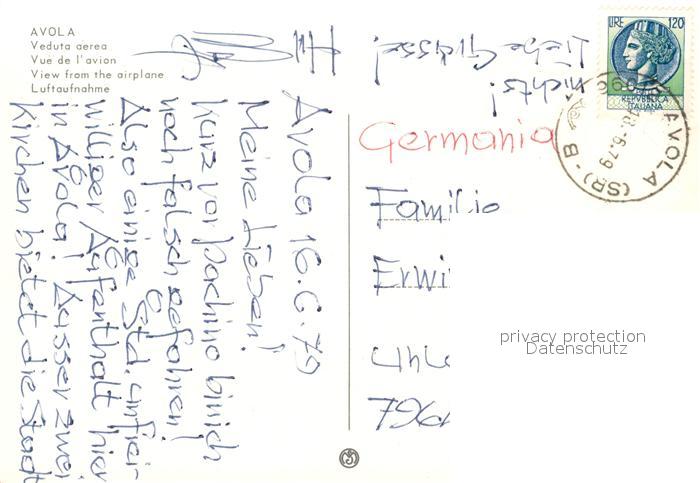 AVOLA
Veduta aerea
Vue de l'avion
View from the airplane
Luftaufnahme
Avola 16.6.79
Meine Lieben!
Kurz vor Pachino bin ich
noch falsch gefahren!
Also einige Std. unfrei-
williger Aufenthalt hier
in Avola! Ausser zwei
Kirchen bietet die Stadt
nichts!
Liebe Grüsse!
LIRE 120
REPVBBLICA
ITALIANA
AVOLA (SR) - B
18-6.79
Germania
Familie
Erwi
796
privacy protection
Datenschutz